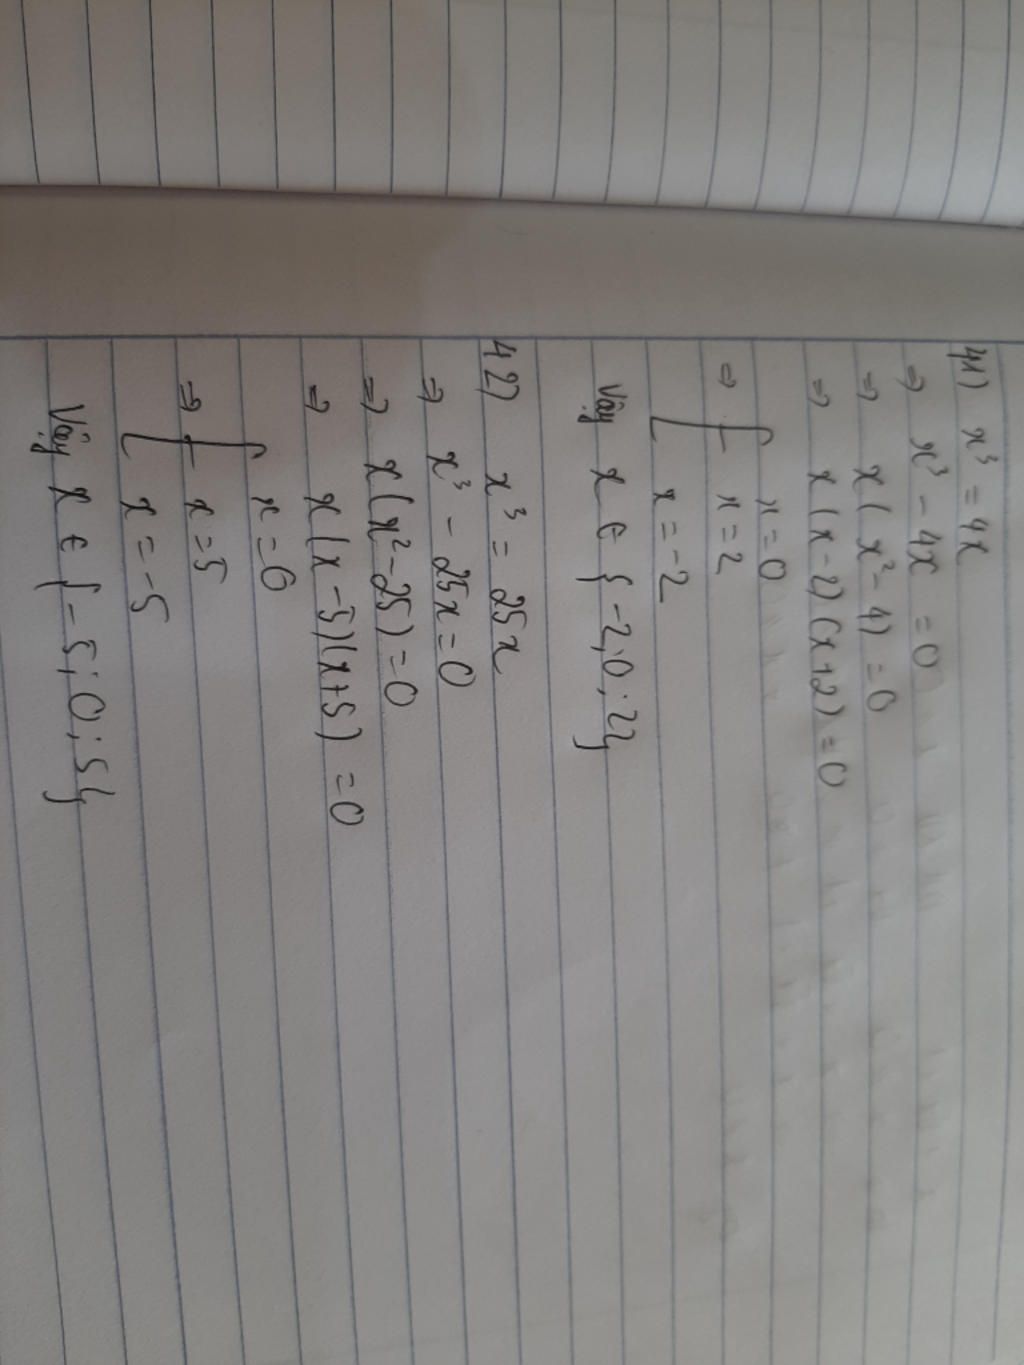 41) x³ = 4x
⇒ x³ - 4x = 0
⇒ x(x² - 4) = 0
⇒ x(x - 2)(x + 2) = 0
x = 0
⇒ [ x = 2
x = -2
Vậy x ∈ {-2; 0; 2}
42) x³ = 25x
⇒ x³ - 25x = 0
⇒ x(x² - 25) = 0
⇒ x(x - 5)(x + 5) = 0
x = 0
⇒ [ x = 5
x = -5
Vậy x ∈ {-5; 0; 5}